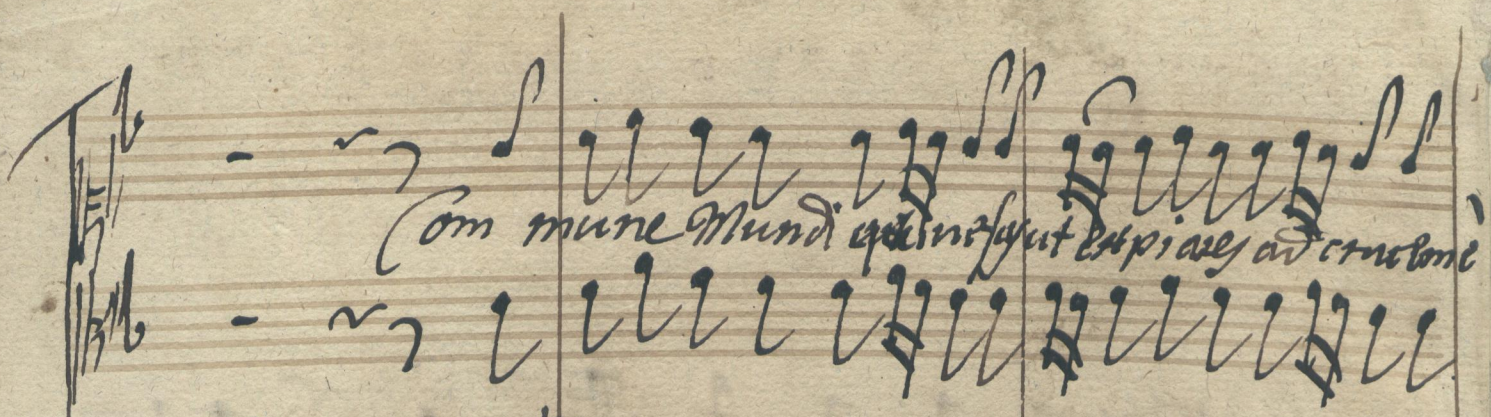 Com mune Mundi qui nefas ut expiares ad crucem e